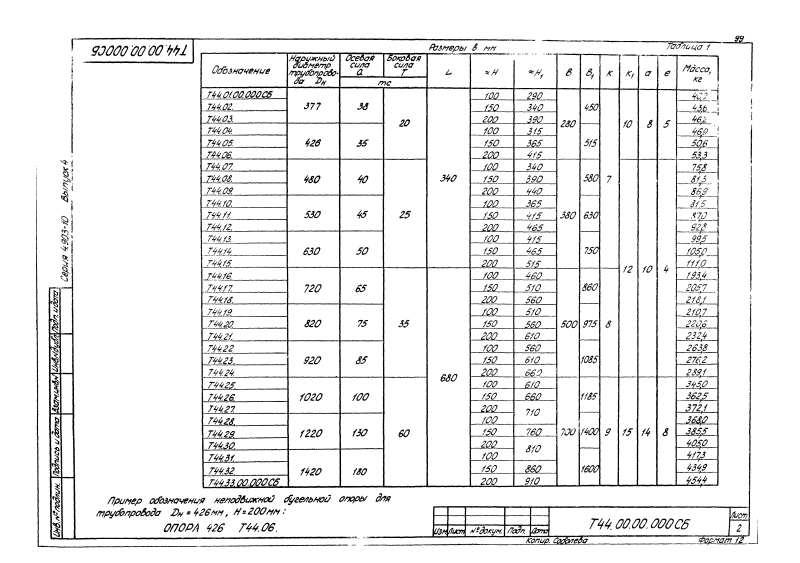 99
Т44. 00. 00. 000 СБ
Размеры в мм
Таблица 1
Обозначение | Наружный диаметр трубопровода Dн | Осевая сила Q | Боковая сила Т | L | ≈H | ≈H₁ | B | B₁ | K | K₁ | a | e | Масса, кг
тс
Т44.01.00.000СБ | 377 | 38 | 20 | 340 | 100 | 290 | 280 | 450 | 7 | 10 | 8 | 5
Т44.02. | 150 | 340 | 43,6
Т44.03. | 200 | 390 | 46,2
Т44.04. | 426 | 35 | 100 | 315 | 515 | 46,9
Т44.05. | 150 | 365 | 50,6
Т44.06. | 200 | 415 | 53,3
Т44.07. | 480 | 40 | 25 | 100 | 340 | 380 | 580 | 12 | 10 | 4 | 75,8
Т44.08. | 150 | 390 | 81,3
Т44.09. | 200 | 440 | 86,9
Т44.10. | 530 | 45 | 100 | 365 | 630 | 81,5
Т44.11. | 150 | 415 | 87,0
Т44.12. | 200 | 465 | 92,8
Т44.13. | 630 | 50 | 100 | 415 | 750 | 99,5
Т44.14. | 150 | 465 | 105,0
Т44.15. | 200 | 515 | 111,0
Т44.16. | 720 | 65 | 35 | 680 | 100 | 460 | 500 | 860 | 8 | 193,4
Т44.17. | 150 | 510 | 205,7
Т44.18. | 200 | 560 | 218,1
Т44.19. | 820 | 75 | 100 | 510 | 975 | 210,7
Т44.20. | 150 | 560 | 220,6
Т44.21. | 200 | 610 | 232,4
Т44.22 | 920 | 85 | 100 | 560 | 1085 | 263,8
Т44.23. | 150 | 610 | 276,2
Т44.24. | 200 | 660 | 289,1
Т44.25 | 1020 | 100 | 60 | 100 | 610 | 700 | 1185 | 9 | 15 | 14 | 8 | 345,0
Т44.26. | 150 | 660 | 362,5
Т44.27. | 200 | 710 | 372,1
Т44.28. | 1220 | 130 | 100 | 1400 | 368,0
Т44.29. | 150 | 760 | 385,5
Т44.30. | 200 | 810 | 405,0
Т44.31. | 1420 | 180 | 100 | 1600 | 417,3
Т44.32. | 150 | 860 | 434,9
Т44.33.00.000СБ | 200 | 910 | 454,4
Пример обозначения неподвижной бугельной опоры для
трубопровода Dн = 426мм, H = 200мм:
ОПОРА 426 Т44.06.
Серия 4.903-10 Выпуск 4
Инв.№подлин. Подпись и дата Взам.инв№ Инв№дубл Подп. и дата
Изм Лист №докум. Подп. Дата
Т44. 00. 00. 000 СБ
Лист
2
Копир.
Формат 12